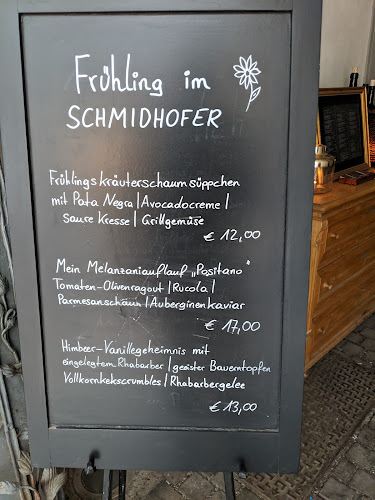 Frühling im
SCHMIDHOFER
Frühlingskräuterschaumsüppchen
mit Pata Negra | Avocadocreme |
saure Kresse | Grillgemüse
€ 12,00
Mein Melanzaniauflauf „Positano"
Tomaten-Olivenragout | Rucola |
Parmesanschaum | Auberginenkaviar
€ 17,00
Himbeer-Vanillegeheimnis mit
eingelegtem Rhabarber | geeister Bauerntopfen
Vollkornkekscrumbles | Rhabarbergelee
€ 13,00